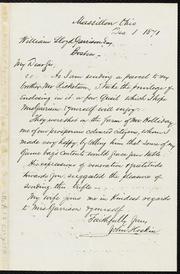 Massillon Ohio
Dec 1 1871
William Lloyd Garrison Esq
Boston
My Dear Sir
As I am sending a parcel to my
brother Mr. Ricketson I take the privilege
of enclosing in it a few Quail which I hope
Mrs Garrison & yourself will enjoy.
They were shot on the farm of Mr
one of your prosperous colored citizens, whom I
made very happy by telling him that some of my
Game bag contents would grace your table
His expressions of veneration & gratitude
towards you suggested the pleasure of
sending this trifle
My wife joins me in kindest regards
to Mrs Garrison & yourself
Faithfully Yours
John